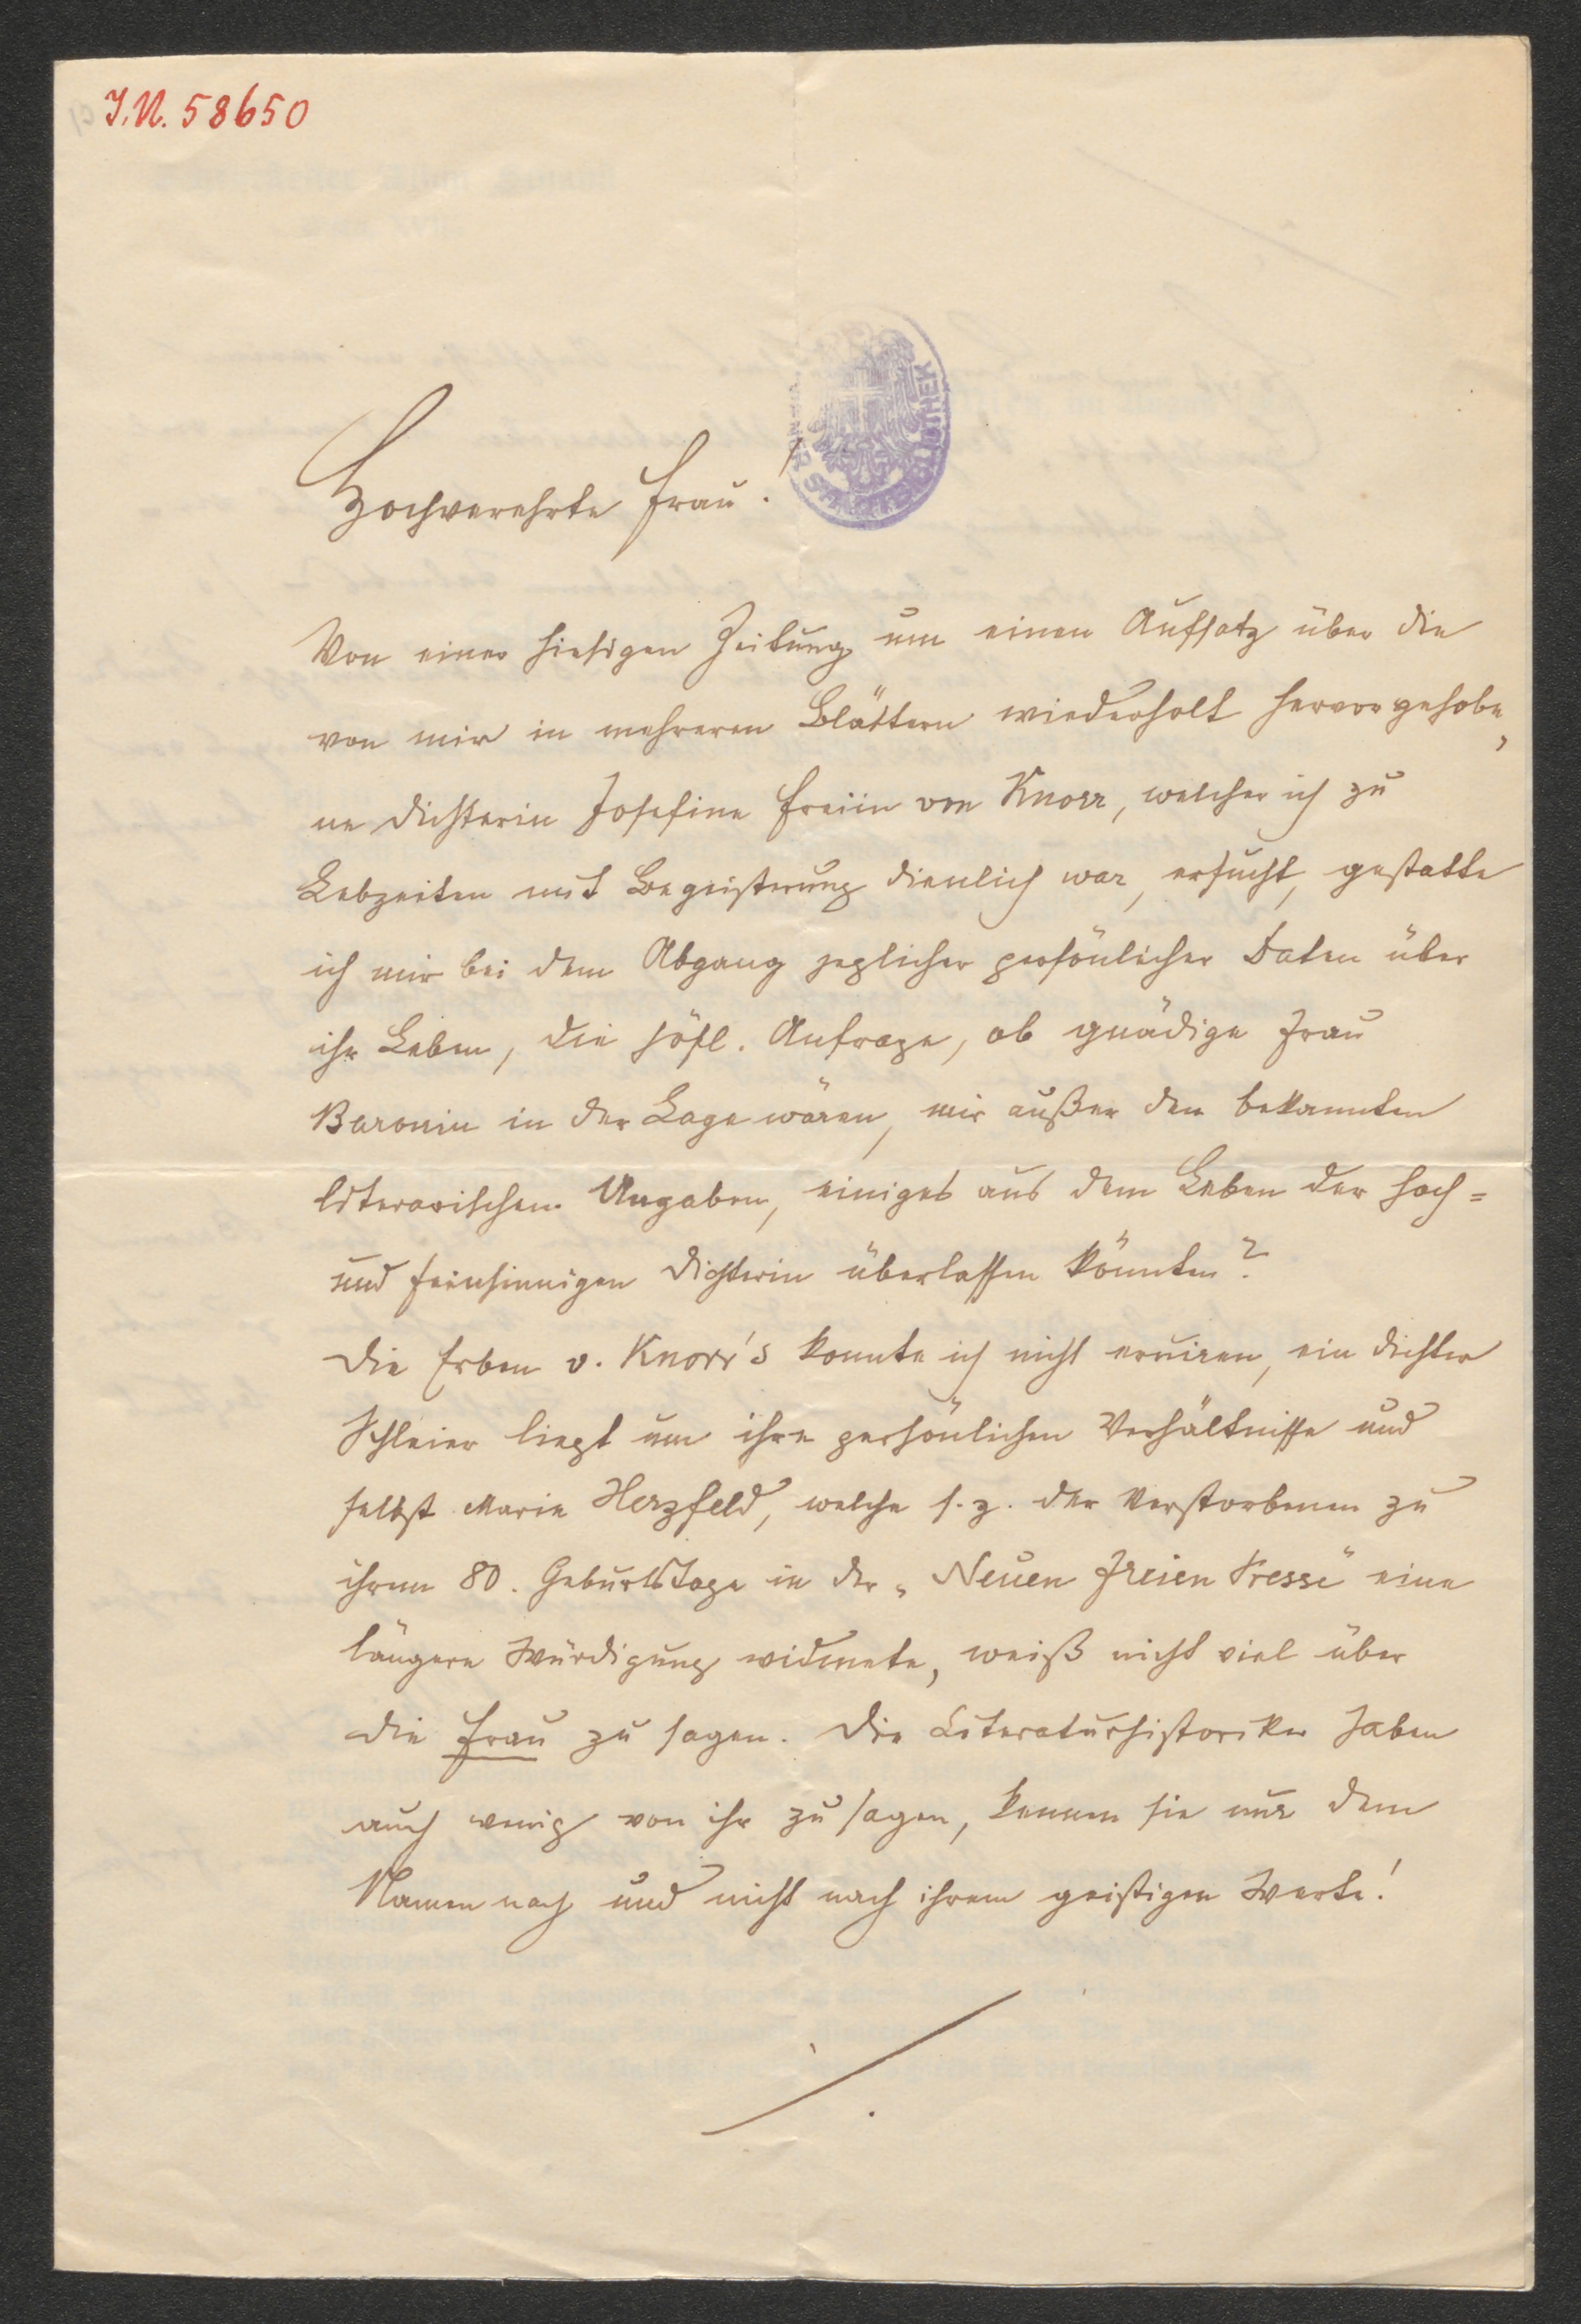 J.N. 58650
Hochverehrte Frau!
Von einer hiesigen Zeitung um einen Aufsatz über die
von mir in mehreren Blättern wiederholt hervorgehobe„
ne Dichterin Josefine Freiin von Knorr, welcher ich zu
Lebzeiten mit Begeisterung dienlich war, ersucht, gestatte
ich mir bei dem Abgang jeglicher persönlicher Daten über
ihr Leben, die höfl. Anfrage, ob gnädige Frau
Baronin in der Lage wären, mir außer den bekannten
literarischen Angaben, einiges aus dem Leben der hoch=
und feinsinnigen Dichterin überlassen könnten?
Die Erben v. Knorr's konnte ich nicht eruiren, ein dichter
Schleier liegt um ihre persönlichen Verhältnisse und
selbst Marie Herzfeld, welche s. z. der Verstorbenen zu
ihrem 80. Geburtstage in der „Neuen Freien Presse" eine
längere Würdigung widmete, weiß nicht viel über
die Frau zu sagen. Die Literaturhistoriker haben
auch wenig von ihr zu sagen, kennen sie nur dem
Namen nach und nicht nach ihrem geistigen Werte!